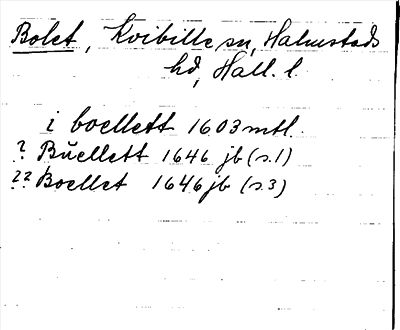 Bolet, Kvibille sn, Halmstads
hd, Hall. l.
i boellett 1603 mtl.
? Bŭellett 1646 jb (s.1)
?? Boellet 1646 jb (s.3)